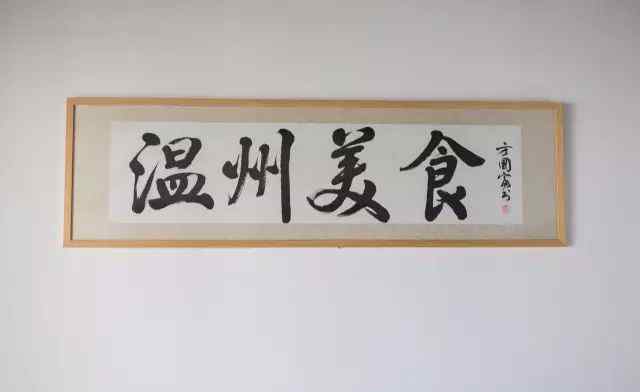 温州美食